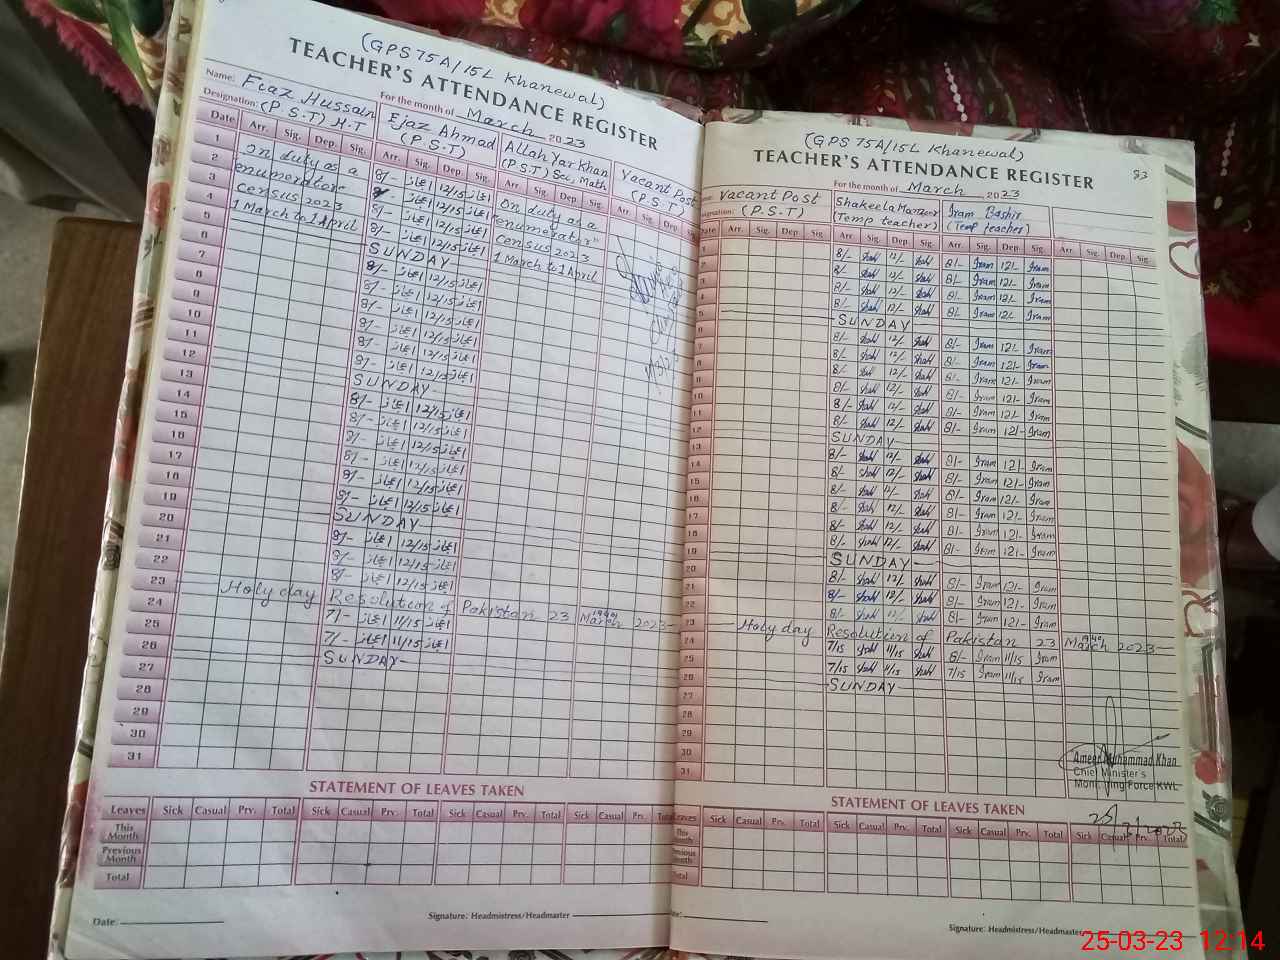 (GPS 75A/15L Khanewal)
TEACHER'S ATTENDANCE REGISTER
Name: Fiaz Hussain
For the month of March 2023
Designation: (P.S.T) H.T
Ejaz Ahmad (P.S.T)
Allah Yar Khan (P.S.T) Sci, Math
Vacant Post (P.S.T)
Date Arr. Sig. Dep. Sig. Arr. Sig. Dep. Sig. Arr. Sig. Dep. Sig. Arr. Sig. Dep. Sig.
On duty as a enumerator census 2023 1 March to 1 April
On duty as a "enumerator" census 2023 1 March to 1 April
1 8/- اعجاز 12/15 اعجاز
2 8/- اعجاز 12/15 اعجاز
3 8/- اعجاز 12/15 اعجاز
4 8/- اعجاز 12/15 اعجاز
5 SUNDAY
6 8/- اعجاز 12/15 اعجاز
7 8/- اعجاز 12/15 اعجاز
8 8/- اعجاز 12/15 اعجاز
9 8/- اعجاز 12/15 اعجاز
10 8/- اعجاز 12/15 اعجاز
11 8/- اعجاز 12/15 اعجاز
12 SUNDAY
13 8/- اعجاز 12/15 اعجاز
14 8/- اعجاز 12/15 اعجاز
15 8/- اعجاز 12/15 اعجاز
16 8/- اعجاز 12/15 اعجاز
17 8/- اعجاز 12/15 اعجاز
18 8/- اعجاز 12/15 اعجاز
19 SUNDAY
20 8/- اعجاز 12/15 اعجاز
21 8/- اعجاز 12/15 اعجاز
22 8/- اعجاز 12/15 اعجاز
23 Holy day Resolution of Pakistan 23 March 1940, 2023
24 7/- اعجاز 11/15 اعجاز
25 7/- اعجاز 11/15 اعجاز
26 SUNDAY
27
28
29
30
31
STATEMENT OF LEAVES TAKEN
Leaves Sick Casual Prv. Total Sick Casual Prv. Total Sick Casual Prv. Total Sick Casual Prv. Total
This Month
Previous Month
Total
Date:
Signature: Headmistress/Headmaster
(GPS 75A/15L Khanewal)
TEACHER'S ATTENDANCE REGISTER
83
For the month of March 2023
Vacant Post
(P.S.T)
Shakeela Manzoor (Temp teacher)
Iram Bashir (Temp teacher)
Date Arr. Sig. Dep. Sig. Arr. Sig. Dep. Sig. Arr. Sig. Dep. Sig. Arr. Sig. Dep. Sig.
1 8/- Shakl 12/- Shakl 8/- Iram 12/- Iram
2 8/- Shakl 12/- Shakl 8/- Iram 12/- Iram
3 8/- Shakl 12/- Shakl 8/- Iram 12/- Iram
4 8/- Shakl 12/- Shakl 8/- Iram 12/- Iram
5 SUNDAY
6 8/- Shakl 12/- Shakl 8/- Iram 12/- Iram
7 8/- Shakl 12/- Shakl 8/- Iram 12/- Iram
8 8/- Shakl 12/- Shakl 8/- Iram 12/- Iram
9 8/- Shakl 12/- Shakl 8/- Iram 12/- Iram
10 8/- Shakl 12/- Shakl 8/- Iram 12/- Iram
11 8/- Shakl 12/- Shakl 8/- Iram 12/- Iram
12 SUNDAY
13 8/- Shakl 12/- Shakl 8/- Iram 12/- Iram
14 8/- Shakl 12/- Shakl 8/- Iram 12/- Iram
15 8/- Shakl 12/- Shakl 8/- Iram 12/- Iram
16 8/- Shakl 12/- Shakl 8/- Iram 12/- Iram
17 8/- Shakl 12/- Shakl 8/- Iram 12/- Iram
18 8/- Shakl 12/- Shakl 8/- Iram 12/- Iram
19 SUNDAY
20 8/- Shakl 12/- Shakl 8/- Iram 12/- Iram
21 8/- Shakl 12/- Shakl 8/- Iram 12/- Iram
22 8/- Shakl 12/- Shakl 8/- Iram 12/- Iram
23 Holy day Resolution of Pakistan 23 March 1940, 2023
24 7/15 Shakl 11/15 Shakl 8/- Iram 11/15 Iram
25 7/15 Shakl 11/15 Shakl 7/15 Iram 11/15 Iram
26 SUNDAY
27
28
29
30
31
Ameer Muhammad Khan
Chief Minister's
Monitoring Force KWL
STATEMENT OF LEAVES TAKEN
Leaves Sick Casual Prv. Total Sick Casual Prv. Total Sick Casual Prv. Total Sick Casual Prv. Total
This Month
Previous Month
Total
Signature: Headmistress/Headmaster
25-03-23 12:14